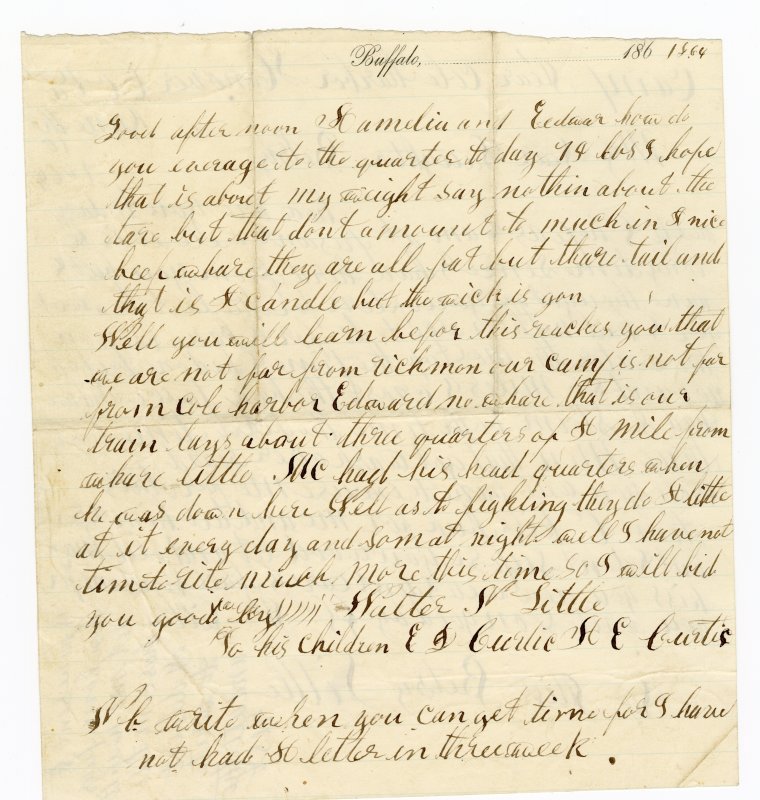 Buffalo, 186 1864
Good after noon A amelia and Eedwar how do
you everage to the quarter to day 74 lbs I hope
that is about my weight say nothin about the
tare but that dont amount to much in A nice
beep whare they are all fat but thare tail and
that is A candle but the wick is gon
Well you will learn befor this reaches you that
we are not far from richmon our camp is not far
from Cole harbor Edward no whare that is our
train lays about three quarters of A mile from
whare little Mc had his head quarters when
he was down here Well as to fighting they do A little
at it every day and som at night well I have not
tim to rite much more this time so I will bid
you good by Walter N Little
To his Children E D Curtic A E Curtis
Nb write when you can get time for I have
not had A letter in three week .